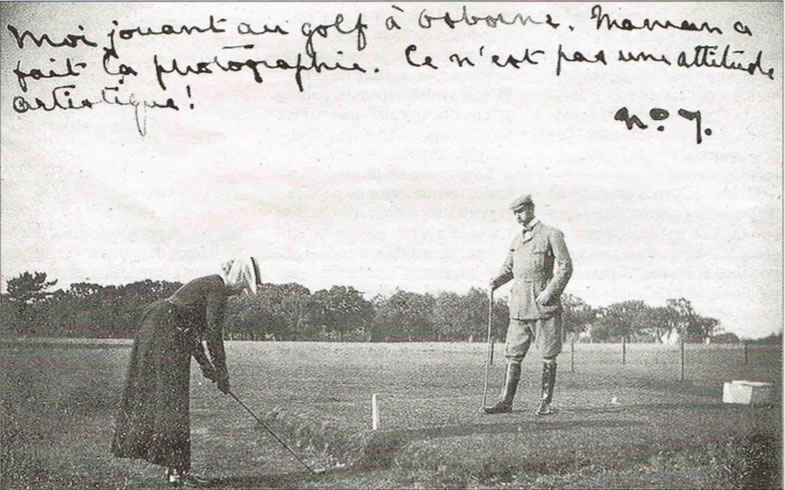 Moi jouant au golf à Osborne. Maman a
fait la photographie. Ce n'est pas une attitude
artistique!
No 7.